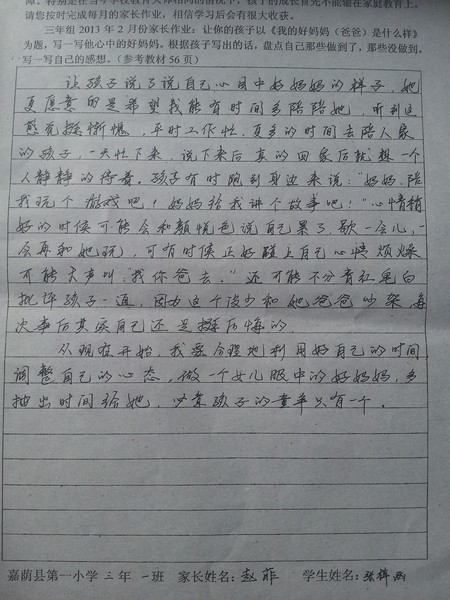 障。特别是在当今学校教育大体相同的情况下，孩子的成长首先不能输在家庭教育上。
请您按时完成每月的家长作业，相信学习后会有很大收获。
三年组 2013 年 2 月份家长作业：让你的孩子以《我的好妈妈（爸爸）是什么样》
为题，写一写他心中的好妈妈。根据孩子写出的话，盘点自己那些做到了，那些没做到。
写一写自己的感想。（参考教材 56 页）
让孩子说了说自己心目中好妈妈的样子，她
更愿意的是希望我能有时间多陪陪她，听到这
感觉挺惭愧，平时工作忙，更多的时间去陪人家
的孩子，一天忙下来，说下来后真的回家后就想一个
人静静的待着。孩子有时跑到身边来说：“妈妈，陪
我玩个游戏吧！妈妈给我讲个故事吧！”心情稍
好的时候可能会和颜悦色说自己累了，歇一会儿，一
会再和她玩，可有时候正好碰上自己心情烦燥
可能大声叫：“找你爸去。”还可能不分青红皂白
批评孩子一通，因为这个没少和她爸爸吵架，每
次事后其实自己还是挺后悔的。
从现在开始，我要合理地利用好自己的时间，
调整自己的心态，做一个女儿眼中的好妈妈，多
抽出时间给她，必竟孩子的童年只有一个。
嘉荫县第一小学 三 年 一 班 家长姓名：赵菲 学生姓名：张